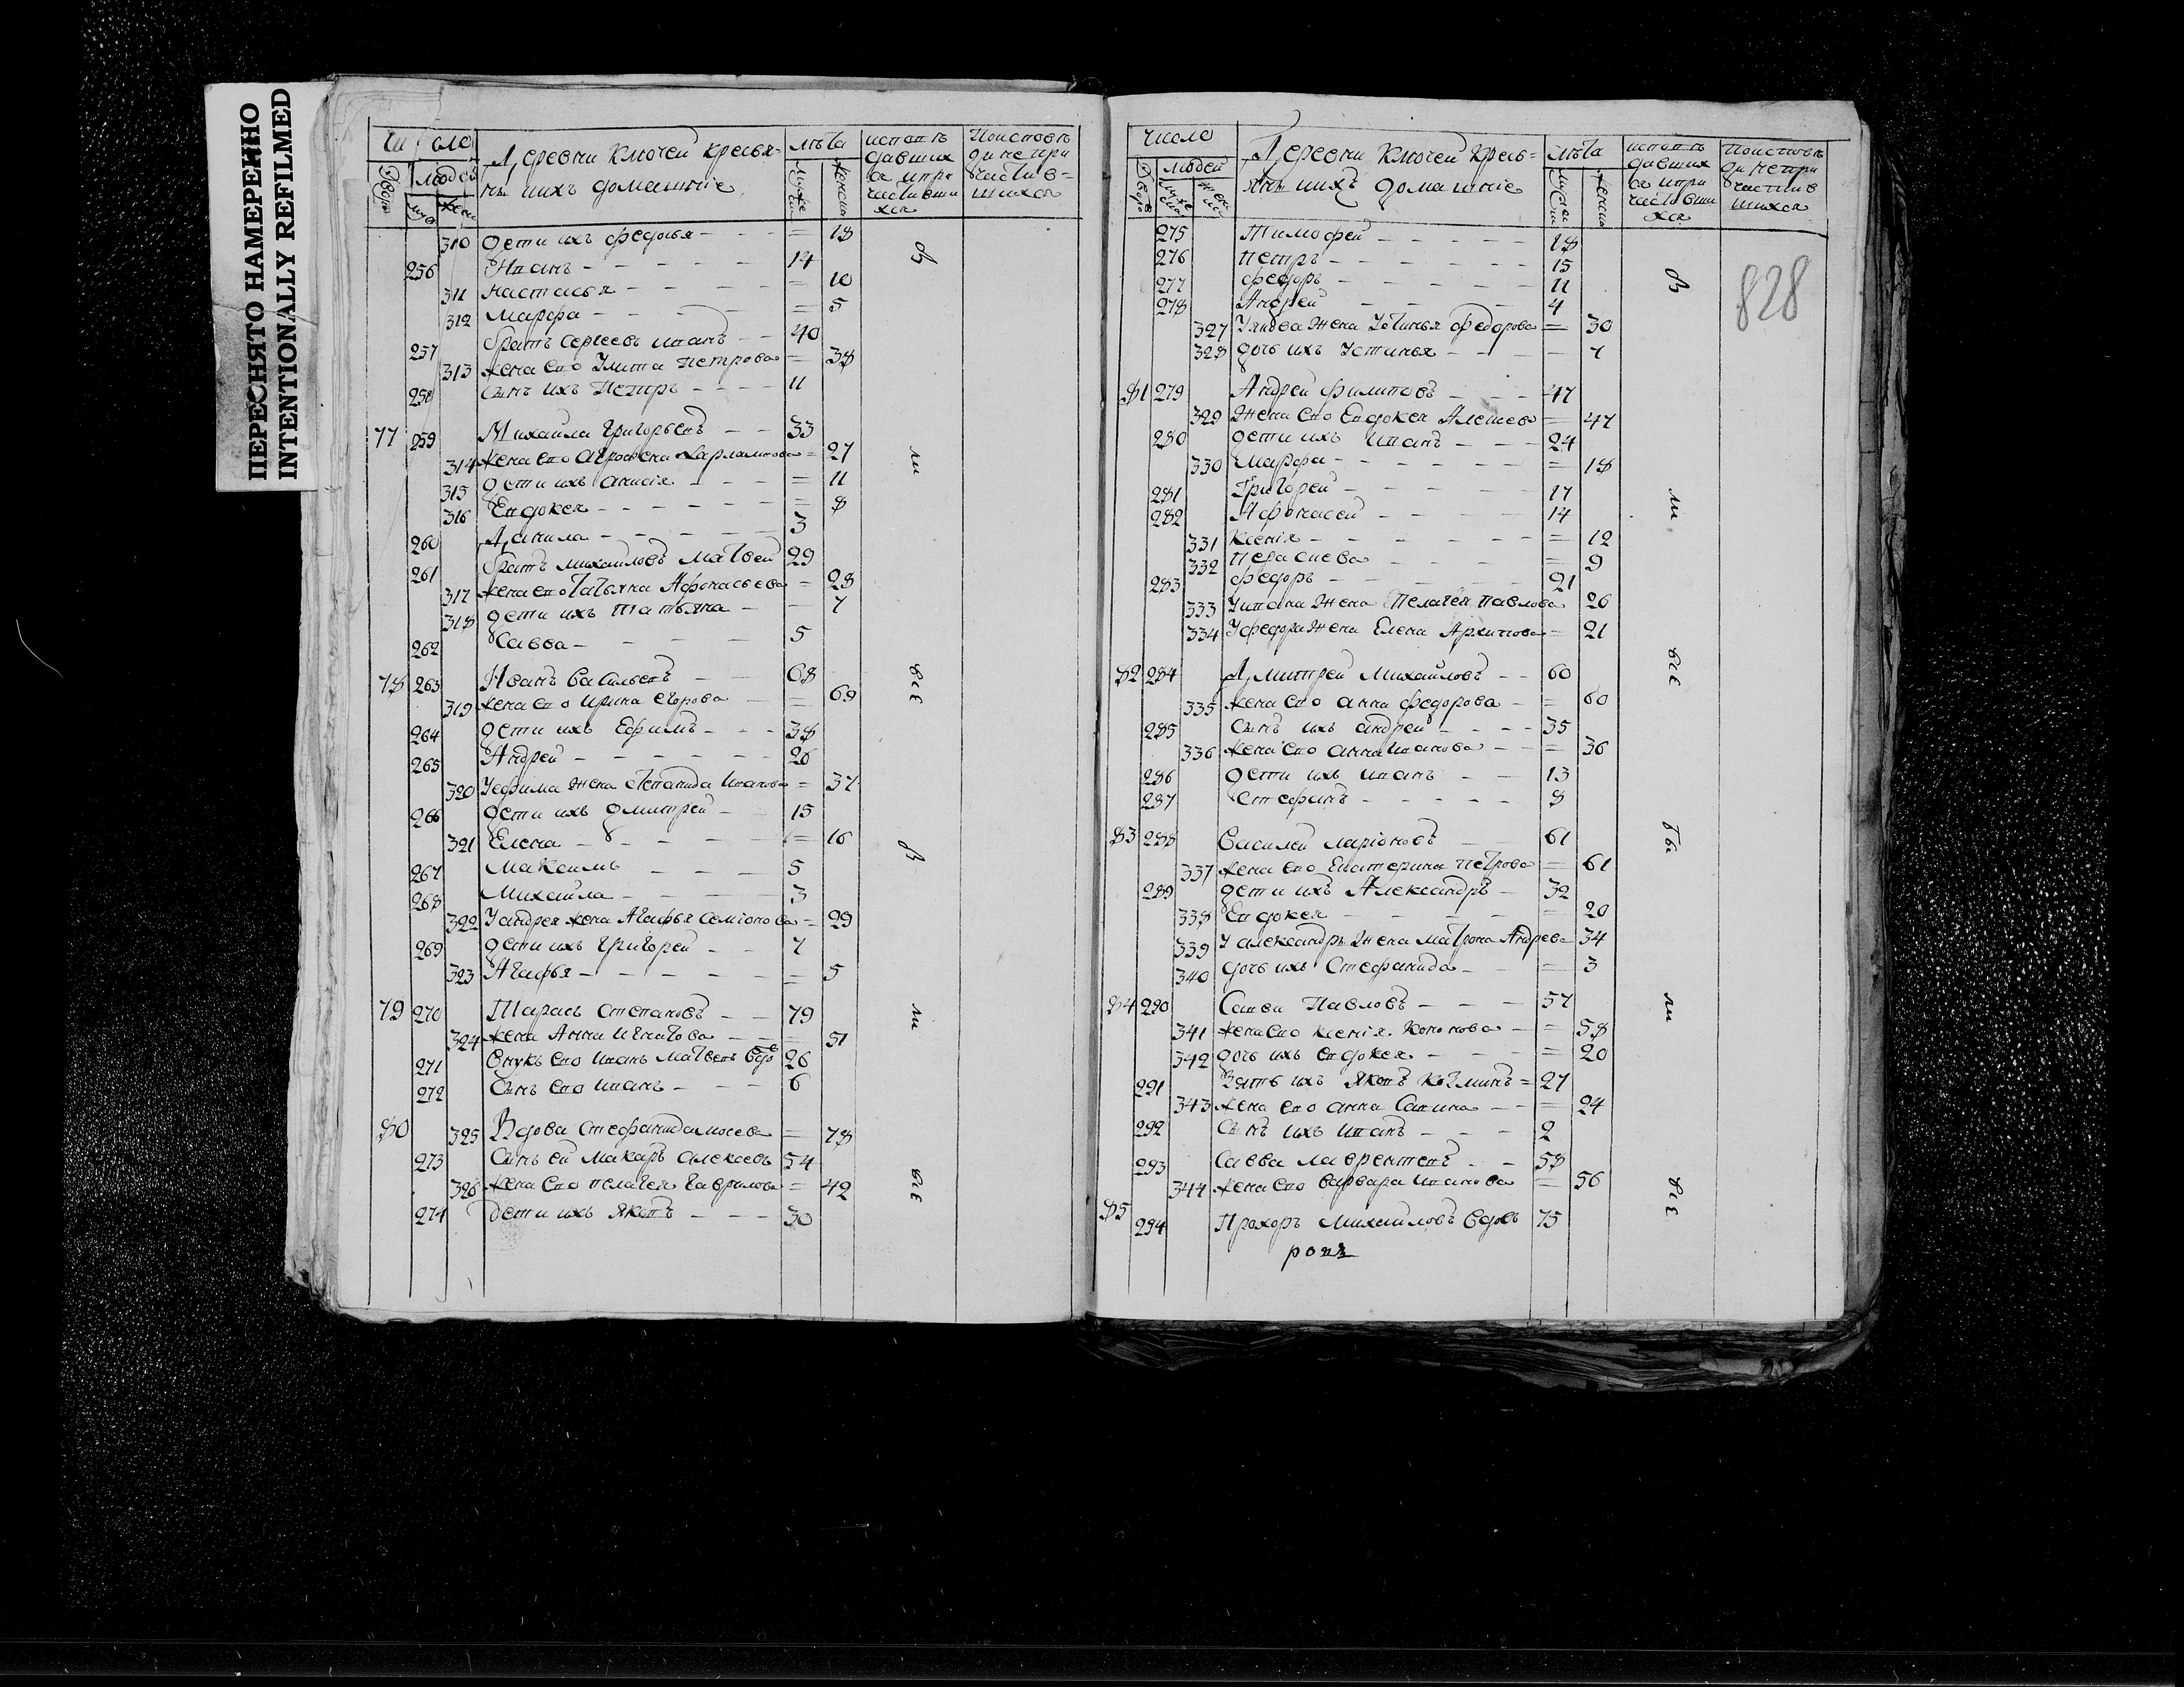 ПЕРЕСНЯТО НАМЕРЕННО
INTENTIONALLY REFILMED
число
Деревни Ключей кресья-
лѣта
испов
Двор
людей
ны и ихъ домашніе
давших
310 дети ихъ федосья - - - = 18
256 Иванъ - - - - - 14
311 настасья - - - - = 10
312 марфа - - - - = 5
257 братъ сергеевъ иванъ - - 40
313 жена ево Улита петрова = 38
258 Сынъ ихъ Петръ - - - 11
77 259 Михаила Григорьевъ - - 33
314 жена ево агрофена харлампова = 27
315 дети ихъ анисія - - - = 11
316 Евдокея - - - - - = 8
260 Данила - - - - - 3
261 братъ михаиловъ матвей 29
317 жена ево татьяна Афонасьева - = 28
318 дети ихъ татьяна - - 7
262 Савва - - - - 5
78 263 Иванъ васильевъ - - 68
319 жена ево ирина егорова - = 69
264 дети ихъ Ефимъ - - - 38
265 Андрей - - - - - - 26
320 У ефима жена степанида иванова = 37
266 дети ихъ дмитрей - - 15
321 Елена - - - - = 16
267 максимъ - - - 5
268 михаила - - - - 3
322 У андрея жена Агафья семіонова = 29
269 дети ихъ григорей - - 7
323 Агафья - - - - - - = 5
79 270 Тарасъ степановъ - - 79
324 жена Анна игнатова - - = 51
271 внукъ ево иванъ матвевъ вдо 26
272 Сынъ ево иванъ - - - 6
80 325 Вдова стефанида мосева = 78
273 Сынъ ей макаръ алексевъ 54
326 жена ево пелагея гаврилова = 42
274 дети ихъ яковъ - - - 30
в
ли
всѣ
в
ли
всѣ
число
Деревни Ключей кресь-
лѣта
людей
яны и ихъ домашніе
давших
828
275 Тимофей - - - - - 18
276 петръ - - - - - - 15
277 федоръ - - - - - - 11
278 Андрей - - - - - 4
327 У якова жена Устинья федорова = 30
328 дочь ихъ устинья - - - - 7
81 279 Андрей филиповъ - - - 47
329 Жена ево Евдокея Алексева = 47
280 дети ихъ иванъ - - - 24
330 Марфа - - - - - - = 18
281 Григорей - - - - - 17
282 Афонасей - - - - 14
331 ксенія - - - - - - = 12
332 Параскева - - - - = 9
283 федоръ - - - - - - 21
333 У ивана жена Пелагея павлова 26
334 У федора жена Елена Архипова = 21
82 284 Дмитрей Михаиловъ - - 60
335 жена ево анна федорова - = 60
285 сынъ ихъ андрей - - - - 35
336 жена ево анна иванова - - = 36
286 дети ихъ иванъ - - 13
287 стефанъ - - - - - 8
83 288 василей ларіоновъ - 61
337 жена ево Екатерина петрова = 61
289 дети ихъ Александръ - 32
338 Евдокея - - - - - = 20
339 У александра жена матрона Андрева 34
340 дочь ихъ стефанида - - = 3
84 290 Савва Павловъ - - - 57
341 жена ево ксенія кононова - = 58
342 дочь ихъ евдокея - - - = 20
291 Зять ихъ яковъ козминъ = 27
343 жена ево анна савина - - = 24
292 Сынъ ихъ иванъ - - - 2
293 Савва лаврентевъ - - 58
344 жена ево варвара иванова = 56
85 294 Прохоръ михаиловъ вдовъ 75
в
ли
всѣ
ли
всѣ